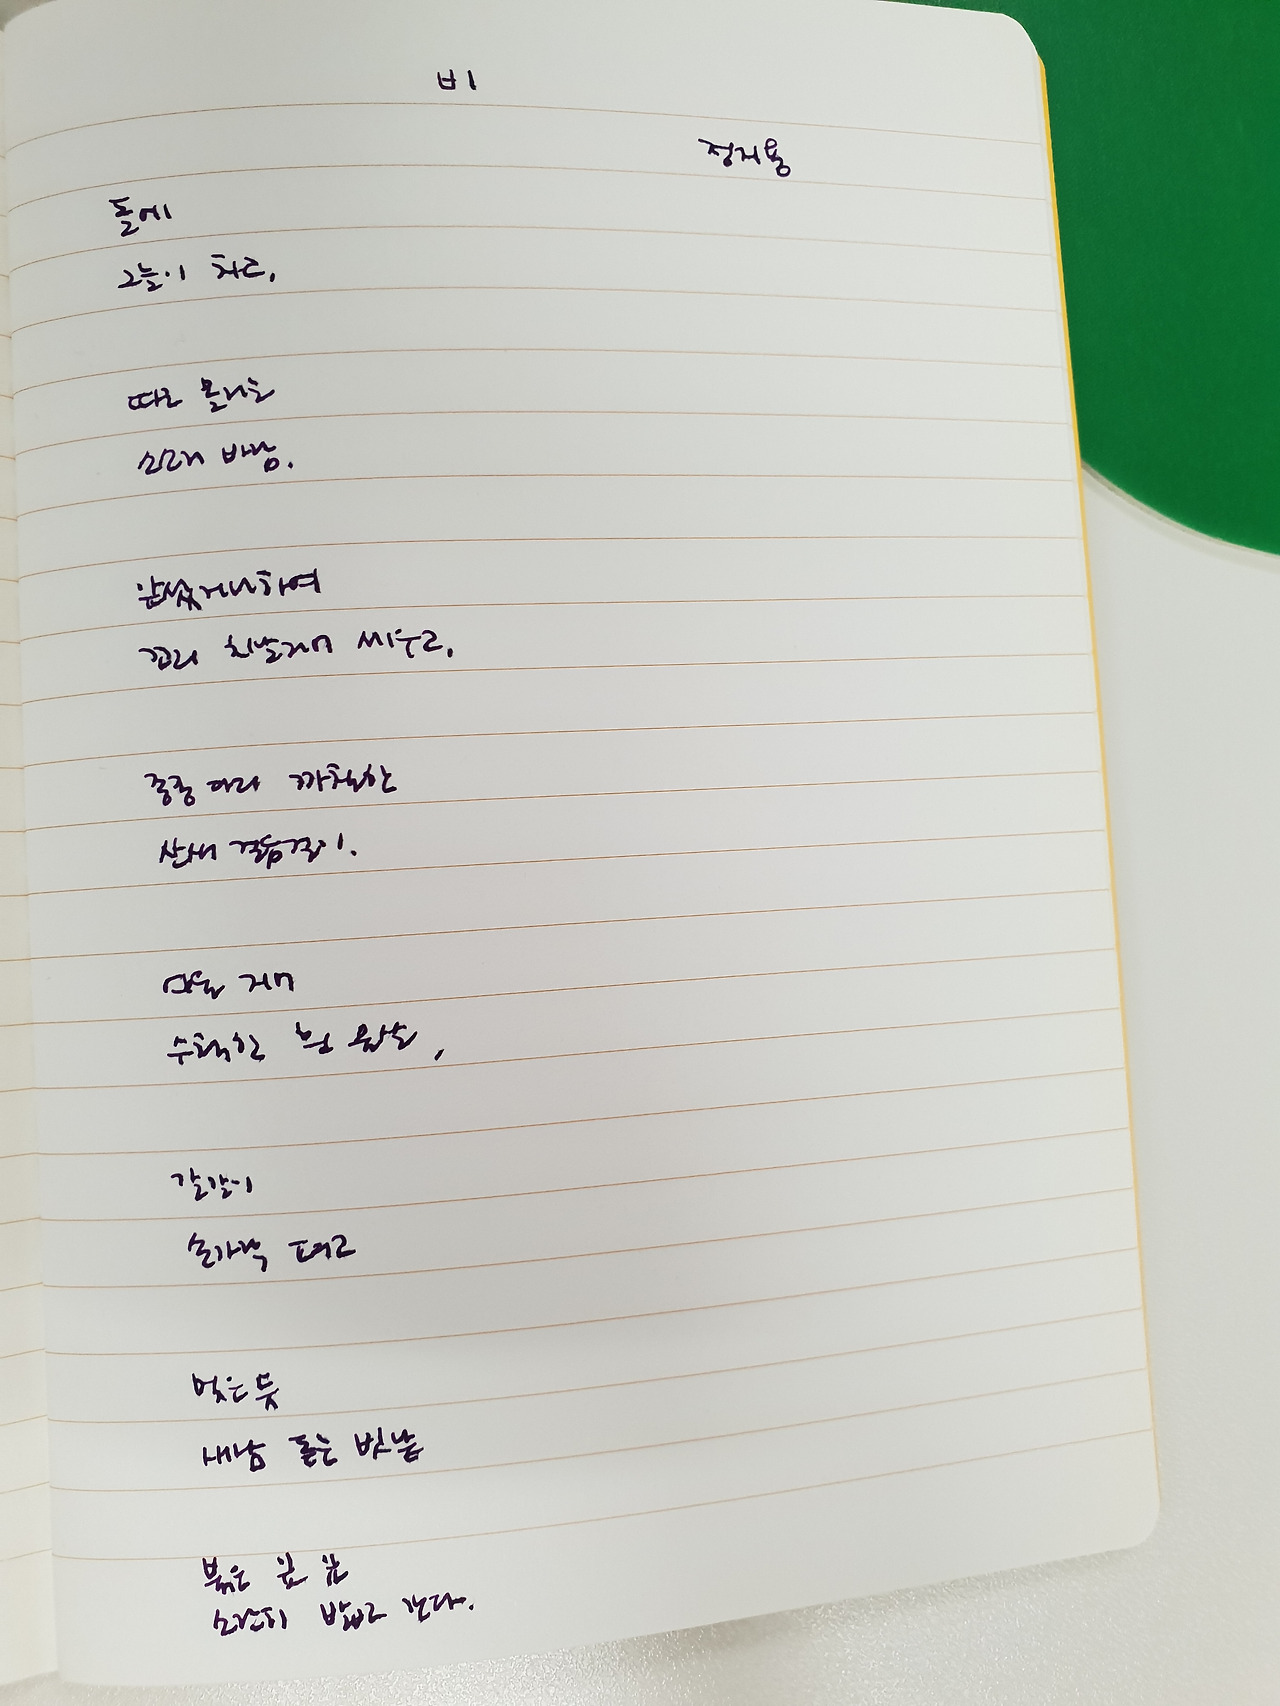 비
정지용
돌에
그늘이 차고,
따로 몰리는
소소리 바람.
앞섰거니하여
꼬리 치날리여 세우고,
종종 다리 까칠한
산새 걸음걸이.
여울 지여
수척한 흰 물살,
갈갈이
손가락 펴고
멎은듯
새삼 돋는 빗낱
붉은 잎 잎
소란히 밟고 간다.